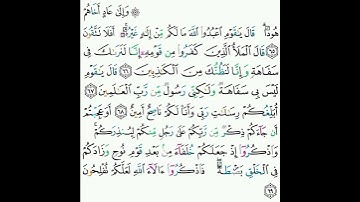 وَإِلَىٰ عَادٍ أَخَاهُمْ
هُودًا ۗ قَالَ يَـٰقَوْمِ ٱعْبُدُوا۟ ٱللَّهَ مَا لَكُم مِّنْ إِلَـٰهٍ غَيْرُهُۥٓ ۚ أَفَلَا تَتَّقُونَ
٦٥ قَالَ ٱلْمَلَأُ ٱلَّذِينَ كَفَرُوا۟ مِن قَوْمِهِۦٓ إِنَّا لَنَرَىٰكَ فِى
سَفَاهَةٍ وَإِنَّا لَنَظُنُّكَ مِنَ ٱلْكَـٰذِبِينَ ٦٦ قَالَ يَـٰقَوْمِ
لَيْسَ بِى سَفَاهَةٌ وَلَـٰكِنِّى رَسُولٌ مِّن رَّبِّ ٱلْعَـٰلَمِينَ ٦٧
أُبَلِّغُكُمْ رِسَـٰلَـٰتِ رَبِّى وَأَنَا۠ لَكُمْ نَاصِحٌ أَمِينٌ ٦٨ أَوَعَجِبْتُمْ
أَن جَآءَكُمْ ذِكْرٌ مِّن رَّبِّكُمْ عَلَىٰ رَجُلٍ مِّنكُمْ لِيُنذِرَكُمْ ۚ
وَٱذْكُرُوٓا۟ إِذْ جَعَلَكُمْ خُلَفَآءَ مِنۢ بَعْدِ قَوْمِ نُوحٍ وَزَادَكُمْ
فِى ٱلْخَلْقِ بَصْۜطَةً ۖ فَٱذْكُرُوٓا۟ ءَالَآءَ ٱللَّهِ لَعَلَّكُمْ تُفْلِحُونَ
٦٩